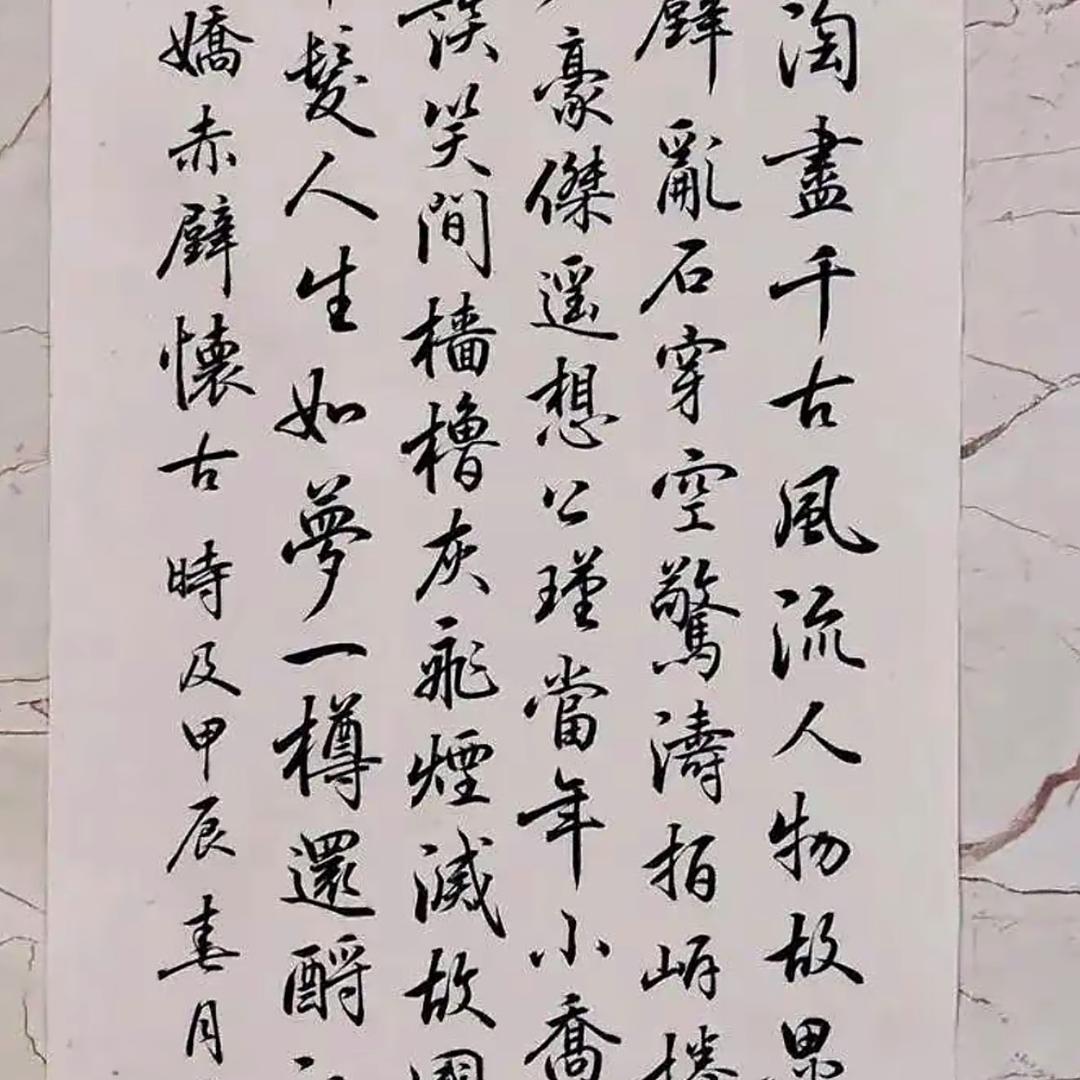 淘盡千古風流人物故壘
壁亂石穿空驚濤拍岸捲
豪傑遥想公瑾當年小喬
談笑間檣櫓灰飛煙滅故國
髮人生如夢一樽還酹江
嬌赤壁懷古時及甲辰春月